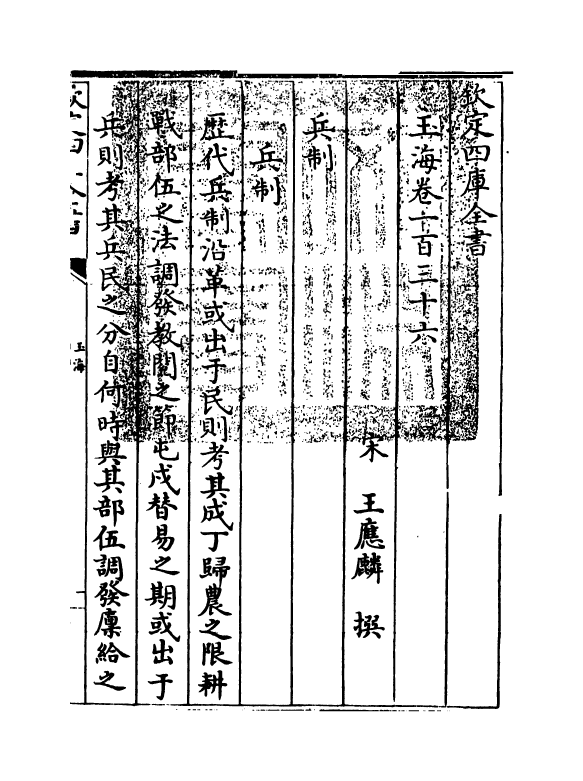 欽定四庫全書
玉海卷一百三十六
宋 王應麟 撰
兵制
兵制
歴代兵制沿革或出于民則考其成丁歸農之限耕
戰部伍之法調發教閲之節屯戍替易之期或出于
兵則考其兵民之分自何時與其部伍調發廩給之
玉海